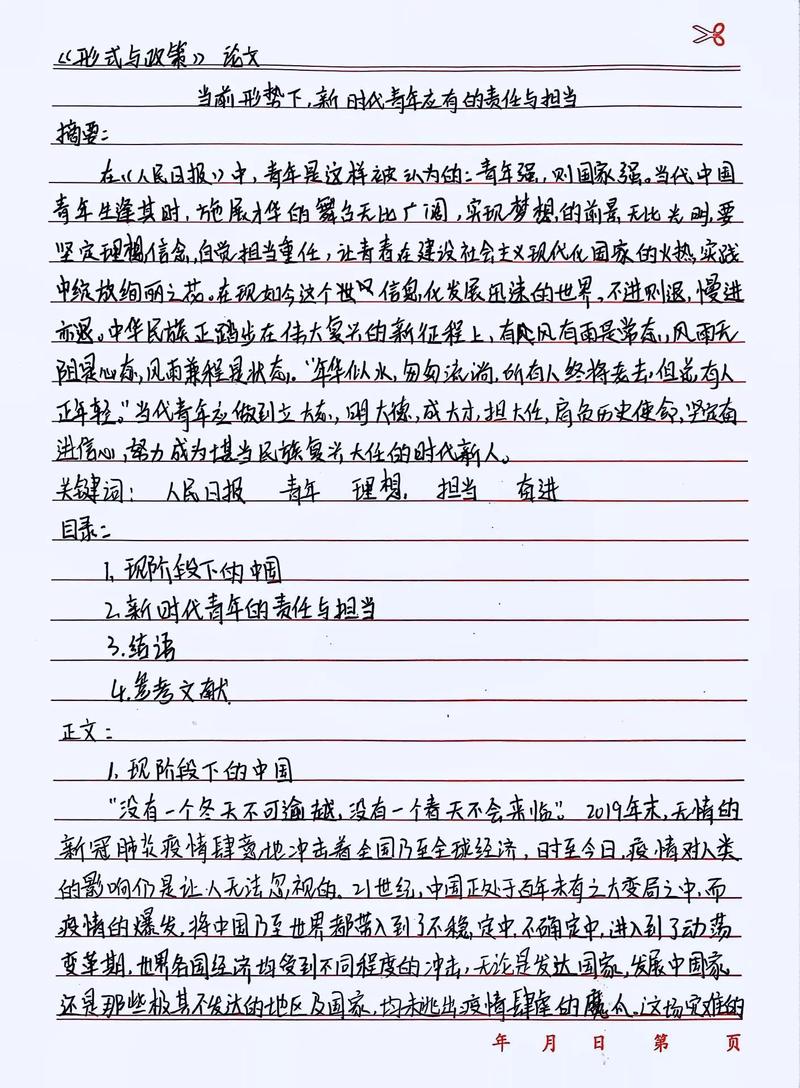 《形式与政策》 论文
当前形势下,新时代青年应有的责任与担当
摘要:
在《人民日报》中,青年是这样被认为的:青年强,则国家强。当代中国
青年生逢其时,施展才华的舞台无比广阔,实现梦想的前景无比光明,要
坚定理想信念,自觉担当重任,让青春在建设社会主义现代化国家的火热实践
中绽放绚丽之花。在现如今这个世 信息化发展迅速的世界,不进则退,慢进
亦退。中华民族正踏步在伟大复兴的新征程上,有风有雨是常态,风雨无
阻是心态,风雨兼程是状态。“年华似水,匆匆流淌,所有人终将老去,但总有人
正年轻。”当代青年应做到立大志,明大德,成大才,担大任,肩负历史使命,坚定奋
进信心,努力成为堪当民族复兴大任的时代新人。
关键词: 人民日报 青年 理想 担当 奋进
目录:
1.现阶段下的中国
2.新时代青年的责任与担当
3.结语
4.参考文献
正文:
1.现阶段下的中国
“没有一个冬天不可逾越,没有一个春天不会来临”。2019年末,无情的
新冠肺炎疫情肆意地冲击着全国乃至全球经济,时至今日,疫情对人类
的影响仍是让人无法忽视的。21世纪,中国正处于百年未有之大变局之中,而
疫情的爆发,将中国乃至世界都带入到了不稳定中,不确定中,进入到了动荡
变革期,世界各国经济均受到不同程度的冲击,无论是发达国家,发展中国家,
还是那些极其不发达的地区及国家,均未逃出疫情肆虐的魔爪。这场灾难的
年 月 日 第 页